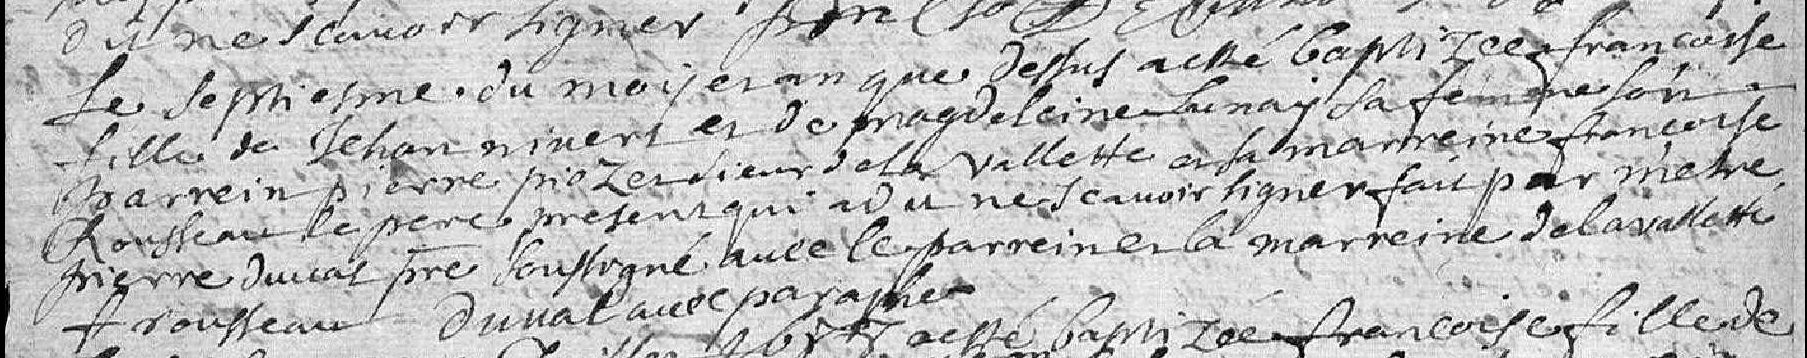 dit ne scauoir signer
Le septiesme du mois et an que dessus a esté baptizée francoise
fille de Jehan niuert et de magdeleine launay sa femme son
parrein pierre piozet sieur de la vallette et sa marreine francoise
Rousseau le pere present qui a dit ne scauoir signer fait par metre
pierre duual pre soussigné auec le parrein et la marreine delavallette
f rousseau duual auec paraphe
a esté baptizée francoise fille de